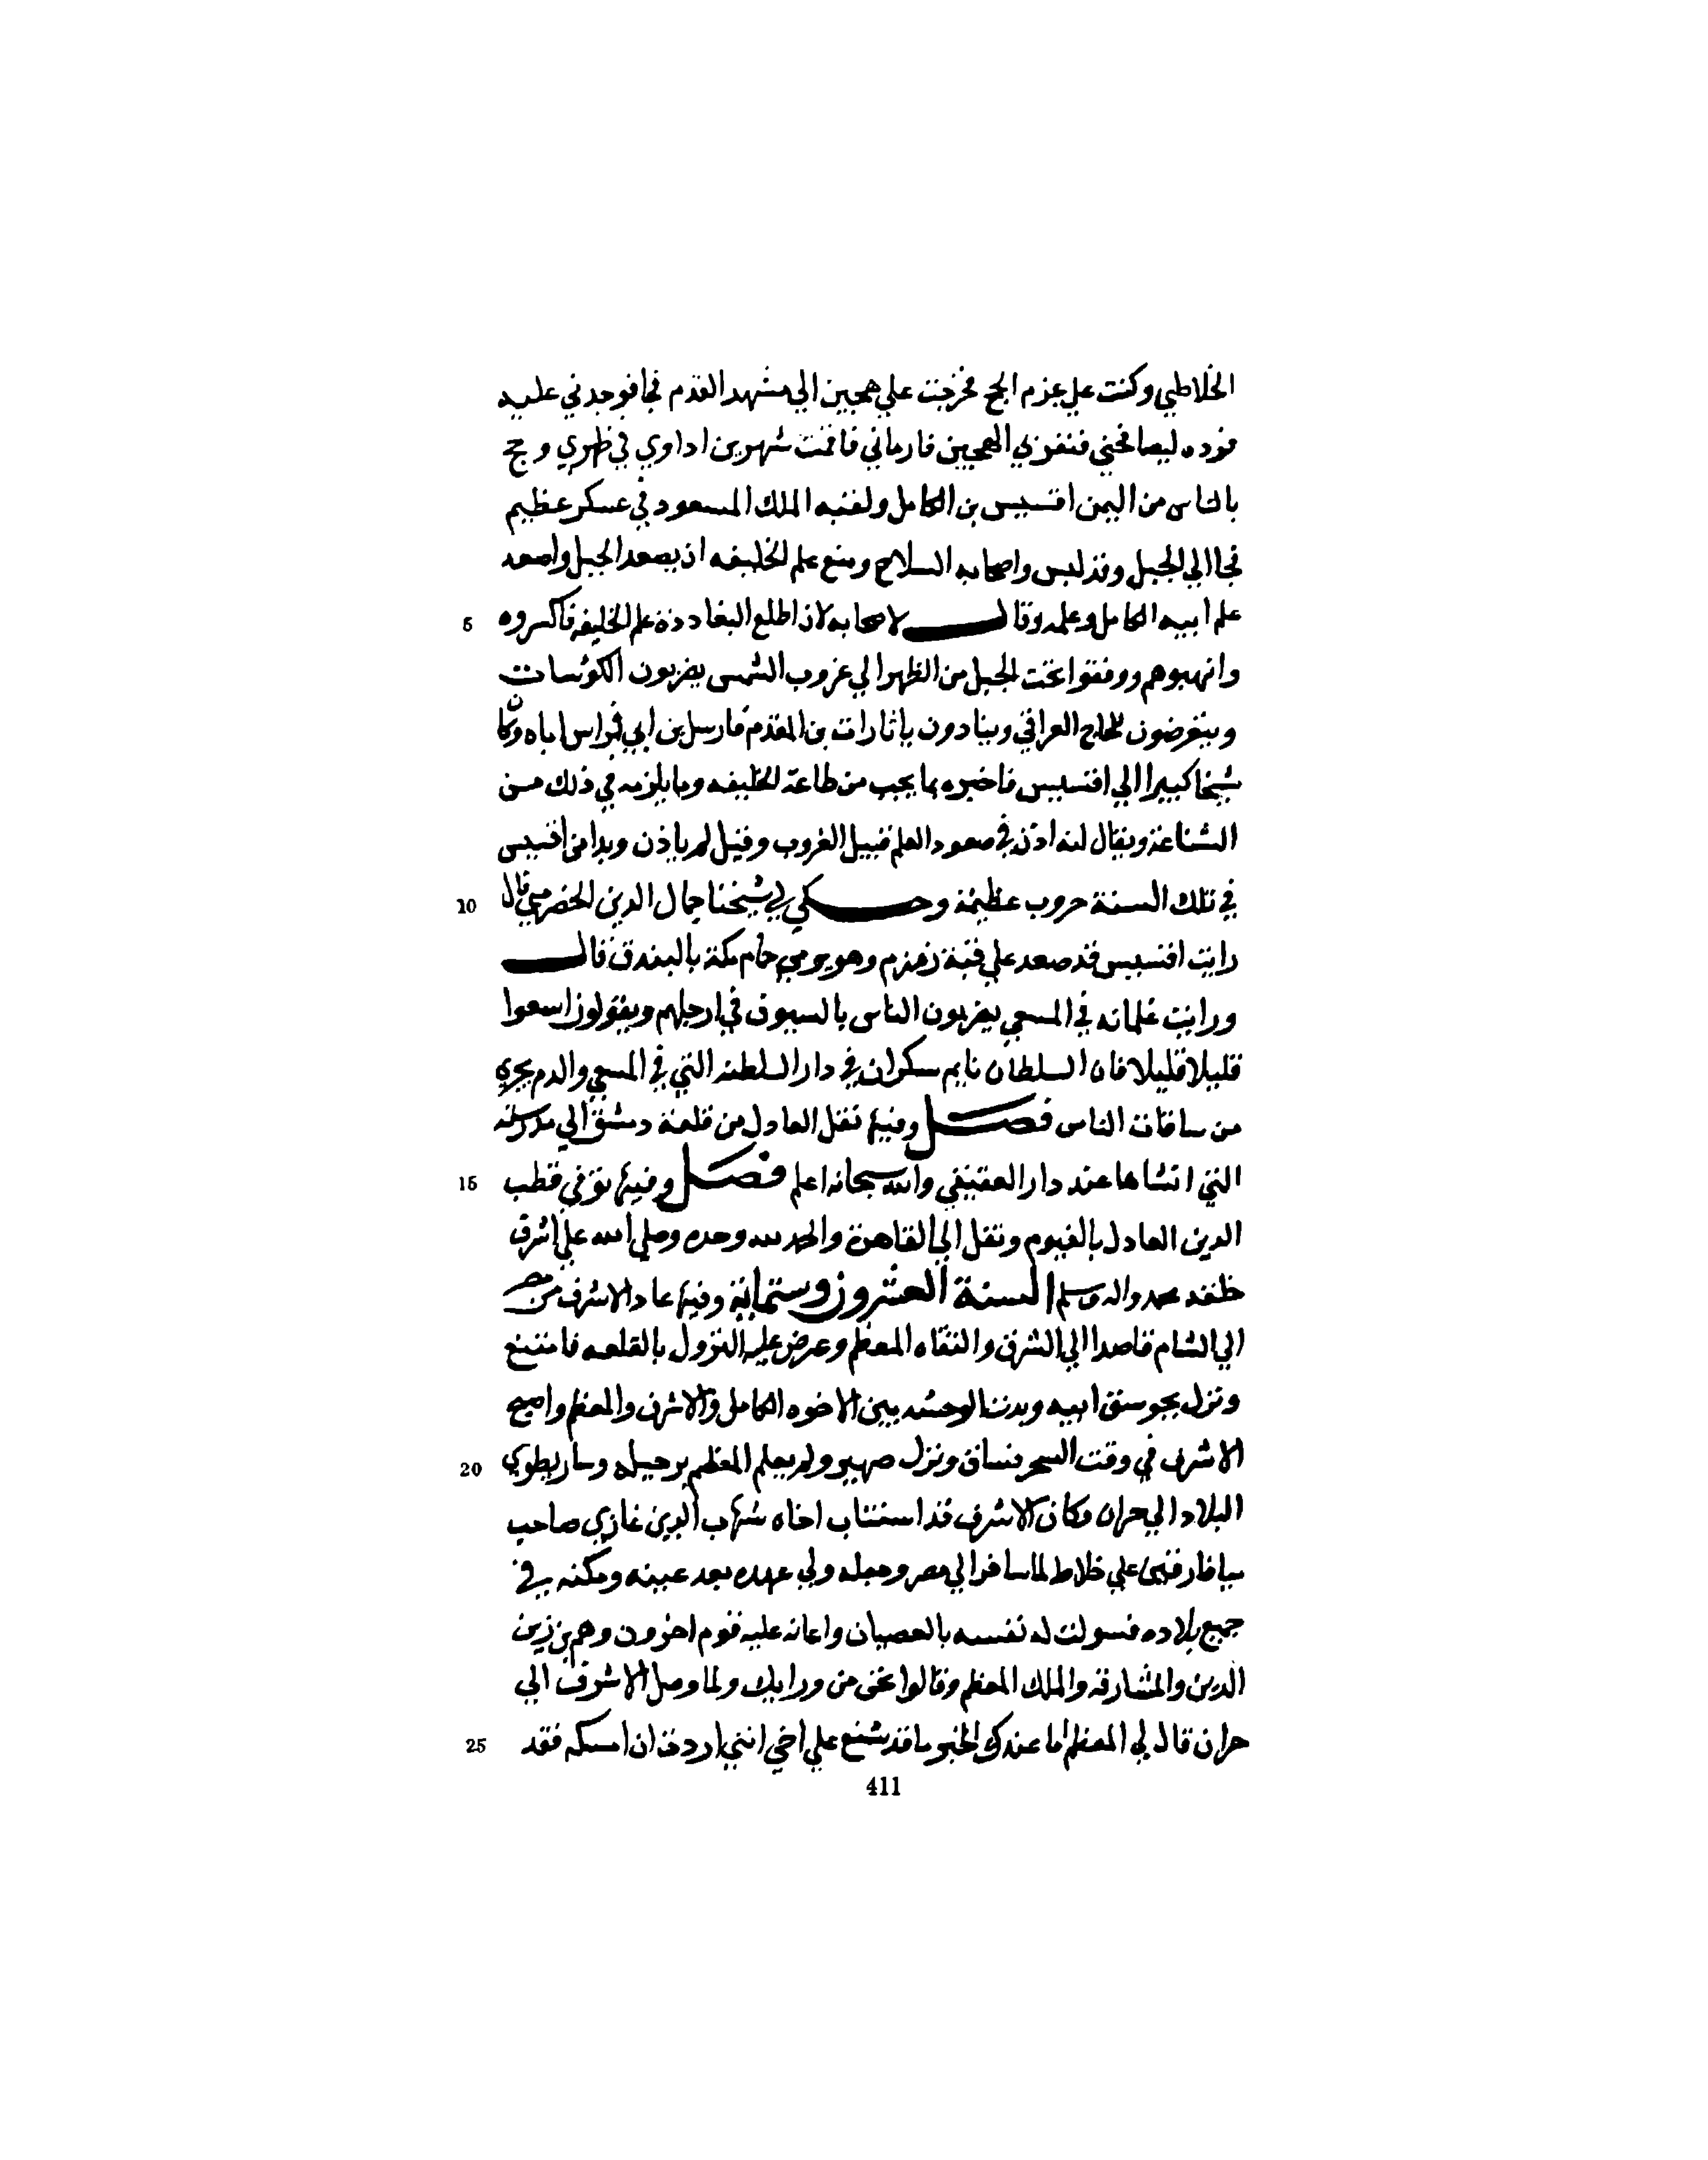 الخلاطي وكنت علي عزم الحج فخرجت علي هجين الي مشهد القدم فجا فوجدني عليه
فرده ليصافحني فنفر بي الهجين فارماني فاقمت شهرين اداوي في ظهري وحج
بالناس من اليمن اقسيس بن الكامل ولقبه الملك المسعود في عسكر عظيم
فجا الي الجبل وقد لبس واصحابه السلاح ومنع علم الخليفه ان يصعد الجبل واصعد
5 علم ابيه الكامل وعلمه وقال لاصحابه لان اطلع البغاددة علم الخليفه فاكسروه
وانهبوهم ووقفوا تحت الجبل من الظهر الي غروب الشمس يضربون الكوسات
ويتعرضون للحاج العراقي وينادون ياثارات بن المقدم فارسل بن ابي فراس اباه وكان
شيخا كبيرا الي اقسيس فاخبره بما يجب من طاعة الخليفه وما يلزمه في ذلك من
الشناعة ويقال انه اذن في صعود العلم قبيل الغروب وقيل لم ياذن وبدا من اقسيس
10 في تلك السنة حروب عظيمة وحكي لي شيخنا جمال الدين الحضرمي قال
رايت اقسيس قد صعد علي قبة زمزم وهو يرمي حمام مكة بالبندق قال
ورايت غلمانه في المسعي يضربون الناس بالسيوف في ارجلهم ويقولون اسعوا
قليلا قليلا فان السلطان نايم سكران في دار السلطنه التي في المسعي والدم يجري
من ساقات الناس فصل وفيها نقل العادل من قلعة دمشق الي مدرسته
15 التي انشاها عند دار العقيقي والله سبحانه اعلم فصل وفيها توفي قطب
الدين العادل بالفيوم ونقل الي القاهرة والحمد لله وحده وصلي الله علي اشرف
خلقه محمد واله وسلم السنة العشرون وستماية وفيها عاد الاشرف من مصر
الي الشام قاصدا الي الشرق والتقاه المعظم وعرض عليه النزول بالقلعه فامتنع
ونزل بجوسق ابيه وبدت الوحشه بين الاخوه الكامل والاشرف والمعظم واصبح
20 الاشرف في وقت السحر فساق ونزل صهير ولم يعلم المعظم برحيله وسار يطوي
البلاد الي حران وكان الاشرف قد استناب اخاه شهاب الدين غازي صاحب
ميافارقين علي خلاط لما سافر الي مصر وجعله ولي عهده بعد عينه ومكنه في
جميع بلاده فسولت له نفسه بالعصيان واعانه عليه قوم اخرون وهم بن زين
الدين والمشارقة والملك المعظم وقالوا نحن من ورايك ولما وصل الاشرف الي
25 حران قال لي المعظم اما عندك الخبر ما قد شنع علي اخي انني اردت ان امسكه فقد
411